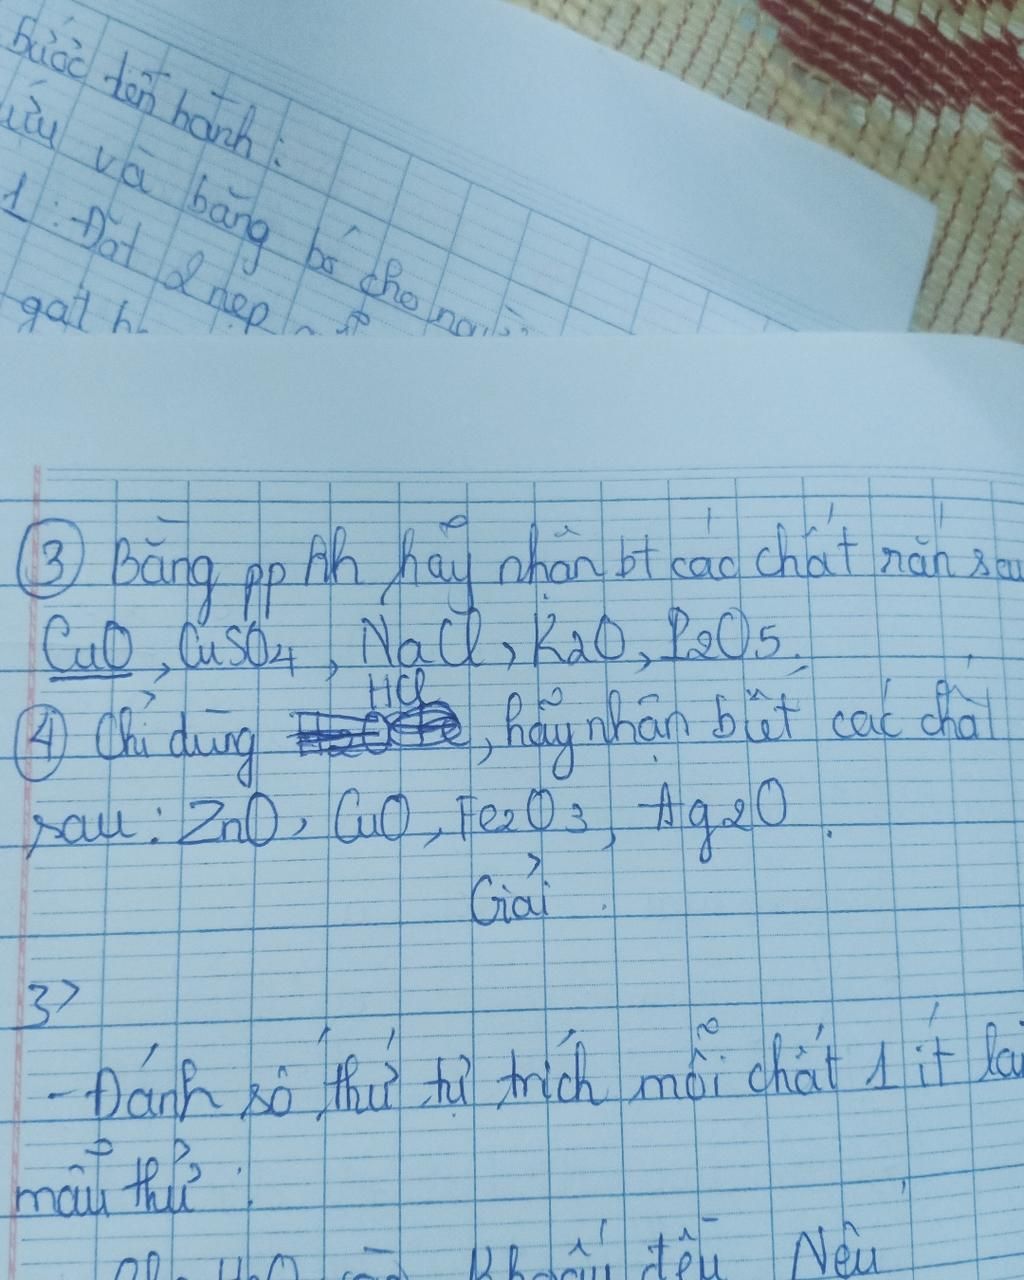 bước tiến hành:
và băng bó cho
1: Đặt 2 nẹp
gạt
③ Bằng pp hh hãy nhận bt các chất rắn sau
CuO, CuSO4, NaCl, K2O, P2O5.
④ Chỉ dùng HCl, hãy nhận biết các chất
sau: ZnO, CuO, Fe2O3, Ag2O.
Giải.
3>
- Đánh số thứ tự trích mỗi chất 1 ít là
mẫu thử.
H2O Khuấy đều Nếu